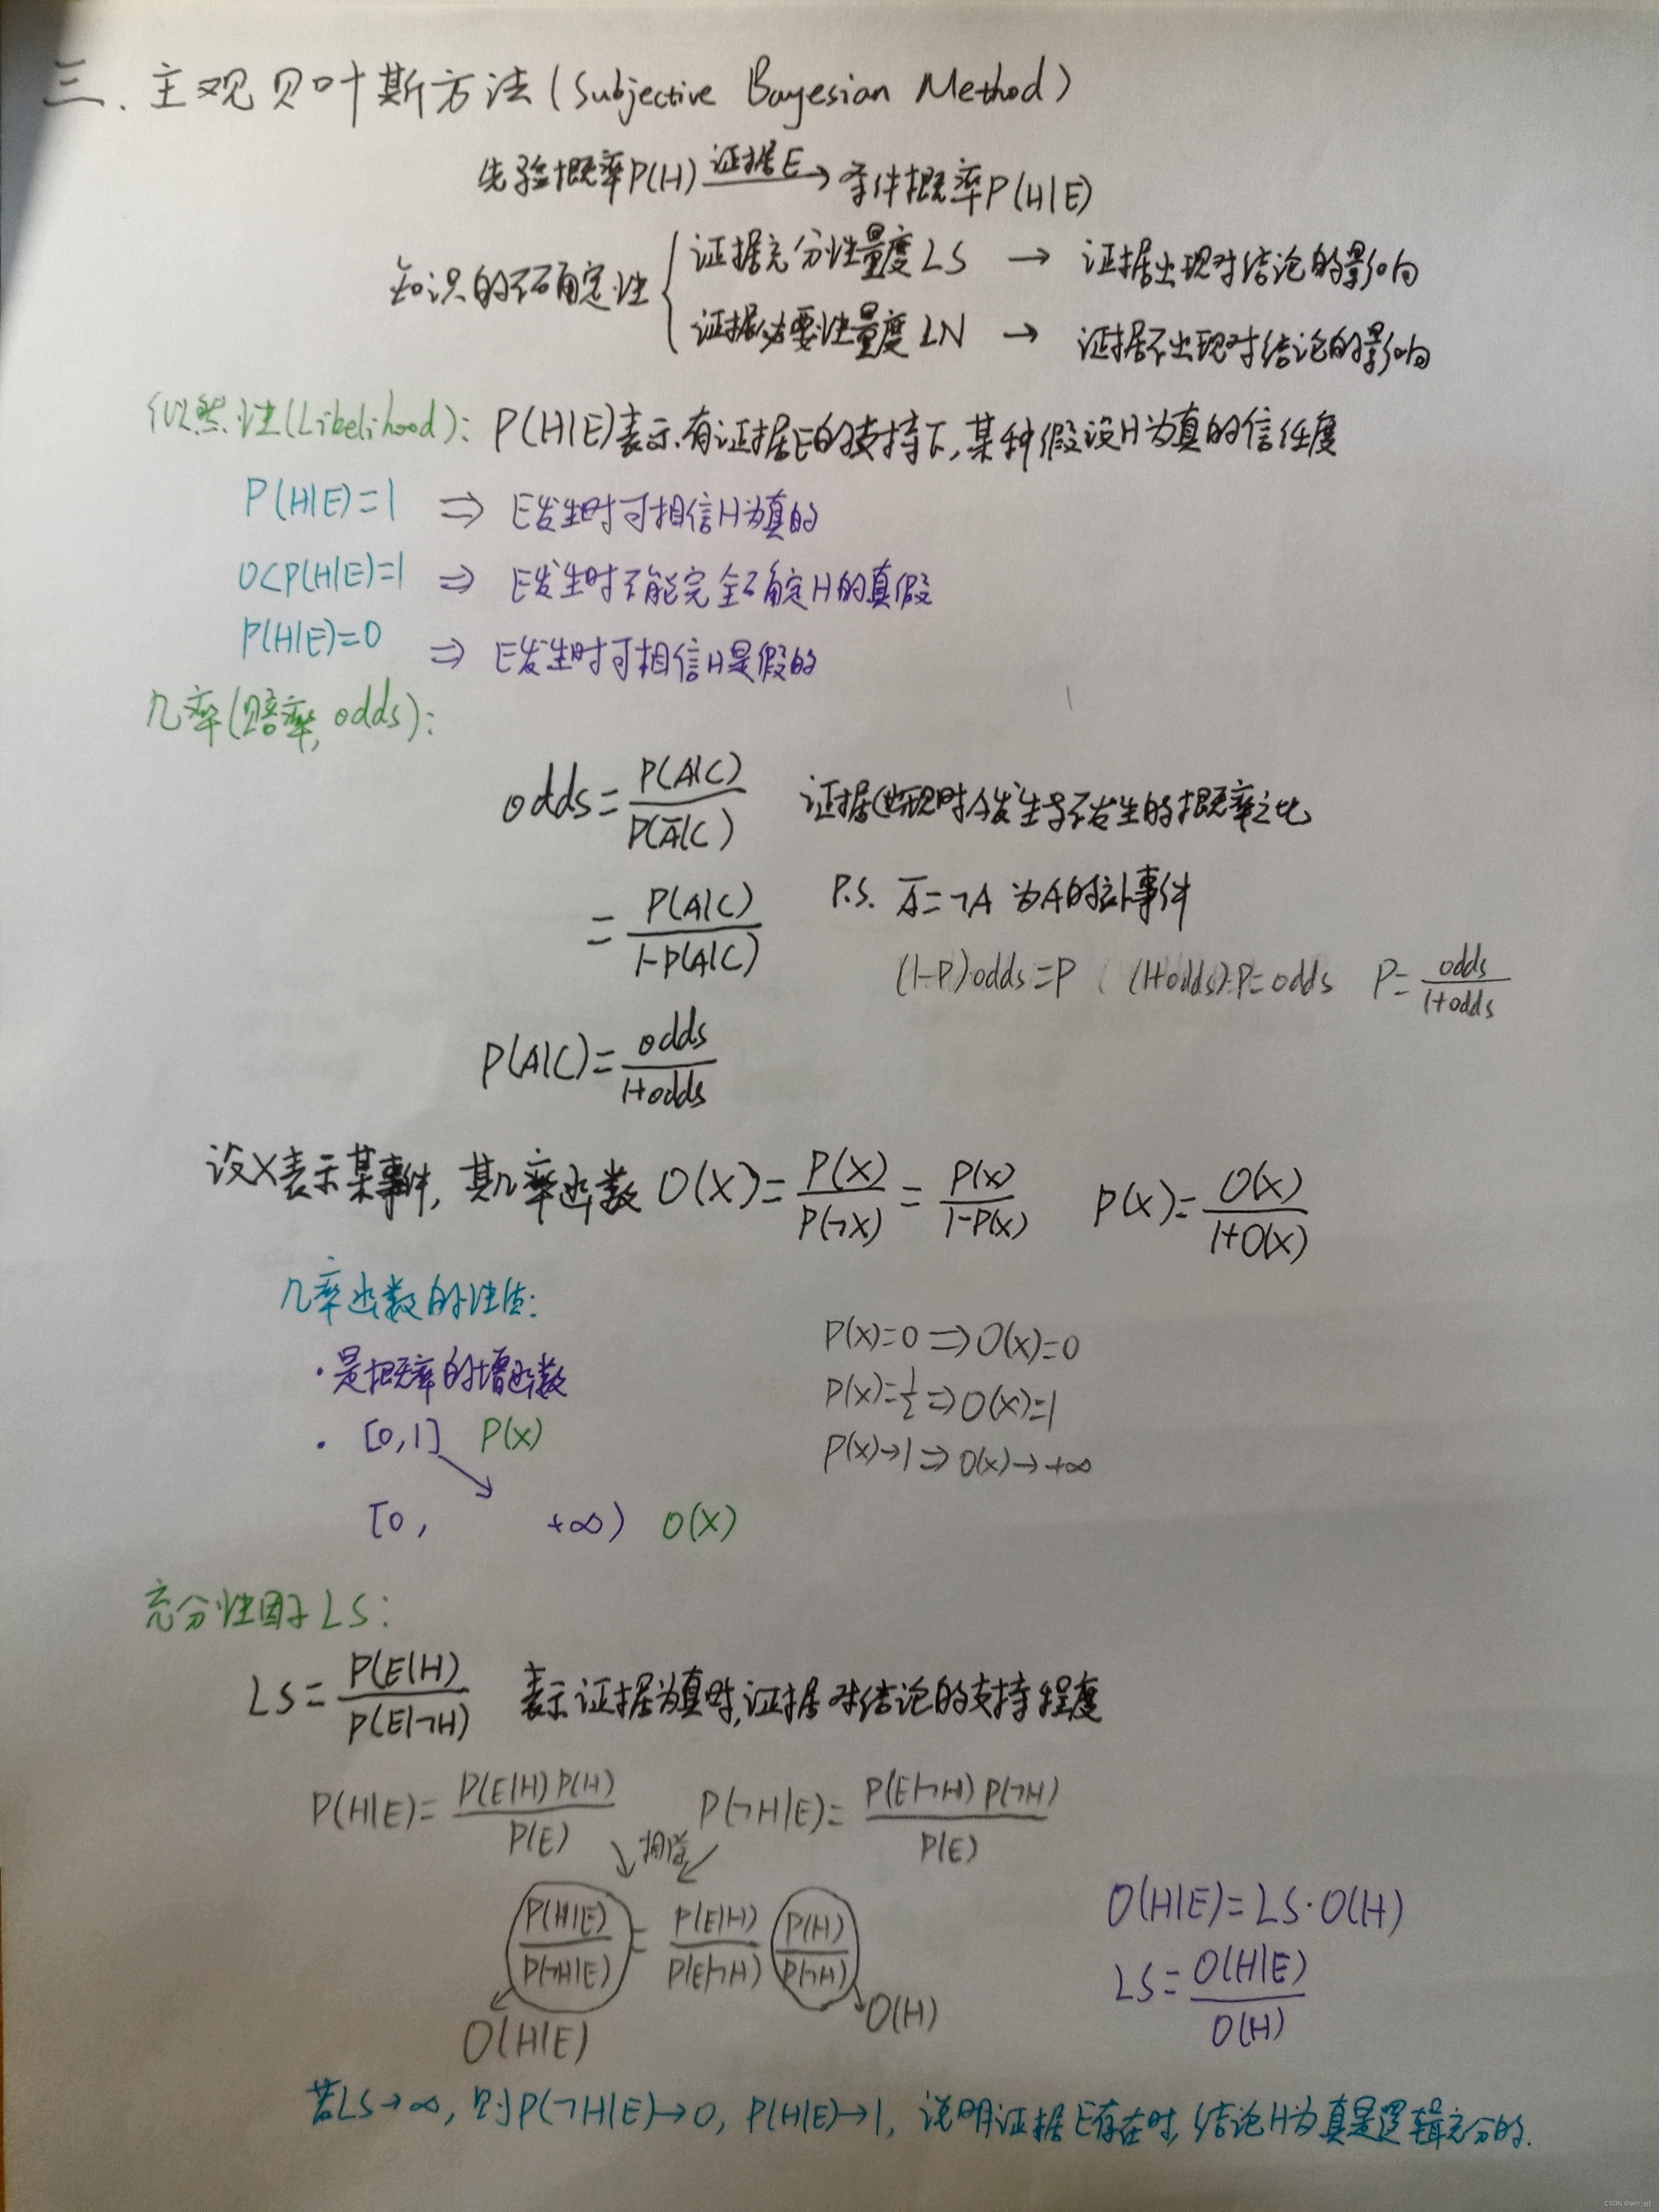 三、主观贝叶斯方法(Subjective Bayesian Method)
先验概率P(H) 证据E→ 条件概率P(H|E)
知识的不确定性 { 证据充分性量度LS → 证据出现对结论的影响
证据必要性量度LN → 证据不出现对结论的影响
似然性(Likelihood): P(H|E)表示有证据E的支持下,某种假设H为真的信任度
P(H|E)=1 ⇒ E发生时可相信H为真的
0<P(H|E)=1 ⇒ E发生时不能完全确定H的真假
P(H|E)=0 ⇒ E发生时可相信H是假的
几率(赔率, odds):
odds = P(A|C) / P(A̅|C) 证据C出现时A发生与不发生的概率之比
= P(A|C) / 1-P(A|C) P.S. A̅=¬A 为A的补事件
(1-P)·odds=P (1+odds)·P=odds P=odds / 1+odds
P(A|C)= odds / 1+odds
设X表示某事件, 其几率函数 O(X)= P(X) / P(¬X) = P(X) / 1-P(X) P(X)= O(X) / 1+O(X)
几率函数的性质:
·是概率的增函数
· [0,1] P(X)
[0, +∞) O(X)
P(X)=0 ⇒ O(X)=0
P(X)=1/2 ⇒ O(X)=1
P(X)→1 ⇒ O(X)→+∞
充分性因子LS:
LS= P(E|H) / P(E|¬H) 表示证据为真时,证据对结论的支持程度
P(H|E)= P(E|H)P(H) / P(E) P(¬H|E)= P(E|¬H)P(¬H) / P(E)
↘ 相除 ↙
P(H|E) / P(¬H|E) = P(E|H) / P(E|¬H) P(H) / P(¬H)
O(H|E) O(H)
O(H|E)=LS·O(H)
LS= O(H|E) / O(H)
若LS→∞, 则P(¬H|E)→0, P(H|E)→1, 说明证据E存在时, 结论H为真是逻辑充分的.